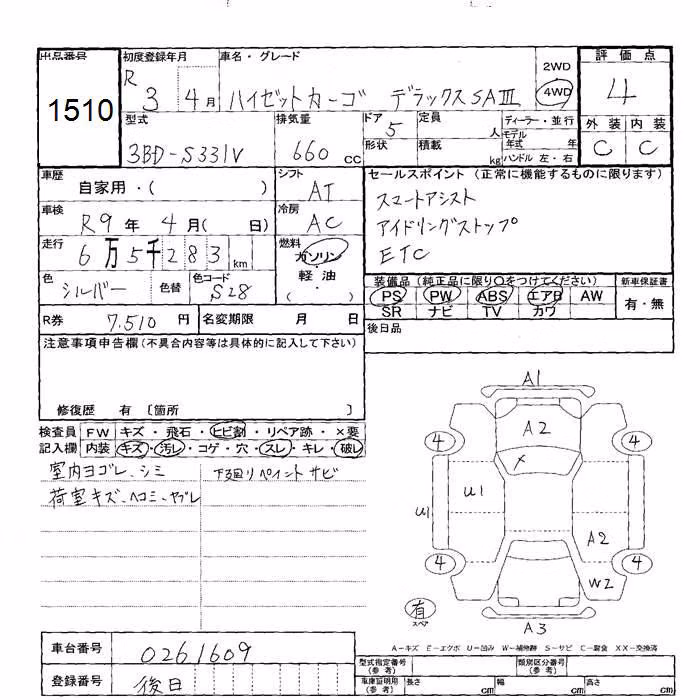 出品番号 初度登録年月 車名・グレード 2WD 評価点
1510 R 3 4月 ハイゼットカーゴ デラックスSAⅢ 4WD 4
型式 排気量 ドア 定員 ディーラー・並行 外装 内装
3BD-S331V 660cc 5 人 モデル年式 年 C C
形状 積載 kg ハンドル 左・右
車歴 自家用・( ) シフト AT セールスポイント (正常に機能するものに限ります)
車検 R9年 4月( 日) 冷房 AC スマートアシスト
アイドリングストップ
走行 6万5千283km 燃料 ガソリン・軽油・( ) ETC
色 シルバー 色替 色コード S28 装備品(純正品に限り○をつけてください) 新車保証書
PS PW ABS エアB AW 有・無
SR ナビ TV カワ
R券 7,510円 名変期限 月 日 後日品
注意事項申告欄(不具合内容等は具体的に記入して下さい)
修復歴 有 〔箇所 〕
検査員記入欄 FW キズ・飛石・ヒビ割・リペア跡・×要
内装 キズ・汚レ・コゲ・穴・スレ・キレ・破レ
室内ヨゴレ、シミ 下3回りペイントサビ
荷室キズ、ヘコミ、ヤブレ
A1
A2
4 4
×
U1
U1
A2
4 4
W2
有 スペア
A3
A-キズ E-エクボ U-凹み W-補修跡 S-サビ C-腐食 XX-交換済
車台番号 0261609
型式指定番号(参考) 類別区分番号(参考)
登録番号 後日
車庫証明用(参考) 長さ cm 幅 cm 高さ cm